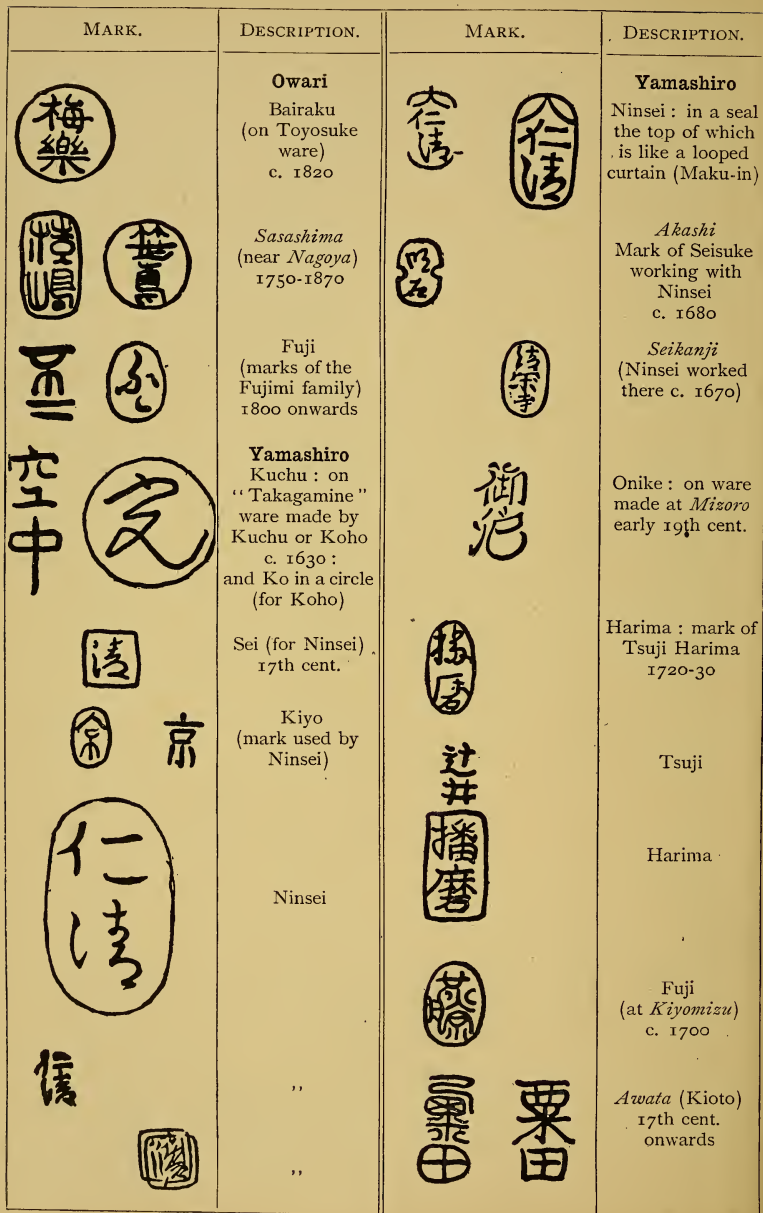 MARK.
DESCRIPTION.
梅樂
Owari
Bairaku
(on Toyosuke
ware)
c. 1820
Sasashima
(near Nagoya)
1750-1870
不二
Fuji
(marks of the
Fujimi family)
1800 onwards
空中
Yamashiro
Kuchu : on
“Takagamine”
ware made by
Kuchu or Koho
c. 1630 :
and Ko in a circle
(for Koho)
清
Sei (for Ninsei)
17th cent.
京
Kiyo
(mark used by
Ninsei)
仁清
Ninsei
仁清
,,
,,
MARK.
DESCRIPTION.
大仁清
大仁清
Yamashiro
Ninsei : in a seal
the top of which
is like a looped
curtain (Maku-in)
明石
Akashi
Mark of Seisuke
working with
Ninsei
c. 1680
Seikanji
(Ninsei worked
there c. 1670)
Onike : on ware
made at Mizoro
early 19th cent.
Harima : mark of
Tsuji Harima
1720-30
辻井
Tsuji
播磨
Harima
Fuji
(at Kiyomizu)
c. 1700
粟田
Awata (Kioto)
17th cent.
onwards